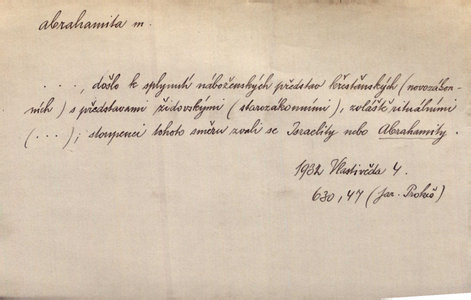 abrahamita m.
. . . , došlo k splynutí náboženských představ křesťanských (novozákon-
ních) s představami židovskými (starozákonními), zvláště rituálními
(. . .); stoupenci tohoto směru zvali se Israelity nebo Abrahamity.
1932 Vlastivěda 4.
630, 47 (Jar. Prokeš)